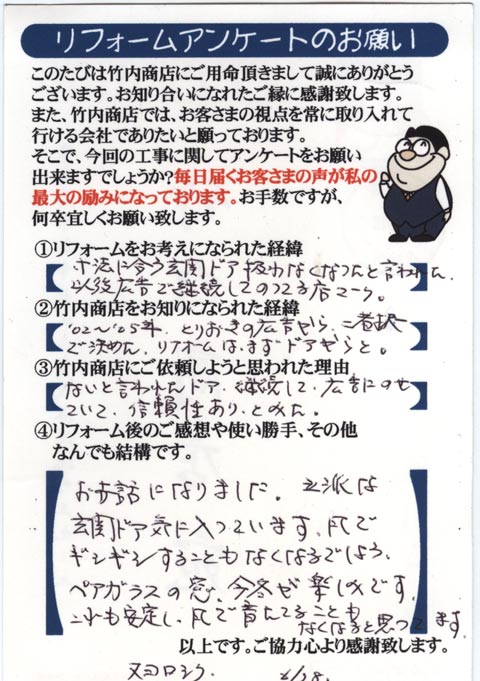 リフォームアンケートのお願い
このたびは竹内商店にご用命頂きまして誠にありがとう
ございます。お知り合いになれたご縁に感謝致します。
また、竹内商店では、お客さまの視点を常に取り入れて
行ける会社でありたいと願っております。
そこで、今回の工事に関してアンケートをお願い
出来ますでしょうか?毎日届くお客さまの声が私の
最大の励みになっております。お手数ですが、
何卒宜しくお願い致します。
①リフォームをお考えになられた経緯
寸法に合う玄関ドア扱わなくなったと言われた、
以後広告で継続してのってる店
②竹内商店をお知りになられた経緯
'02〜'05年、とりおきの広告から、二者択一
で決めた、リフォームはまずドアからと。
③竹内商店にご依頼しようと思われた理由
ないと言われたドア、継続して、広告にのせ
ていて、信頼性あり、とみた。
④リフォーム後のご感想や使い勝手、その他
なんでも結構です。
お世話になりました。立派な
玄関ドア気に入っています、風で
ギシギシすることもなくなるでしょう、
ペアガラスの窓、今冬が楽しみです、
これも安定し、風で音たてることも
なくなると思ってます
以上です。ご協力心より感謝致します。
又ヨロシク。